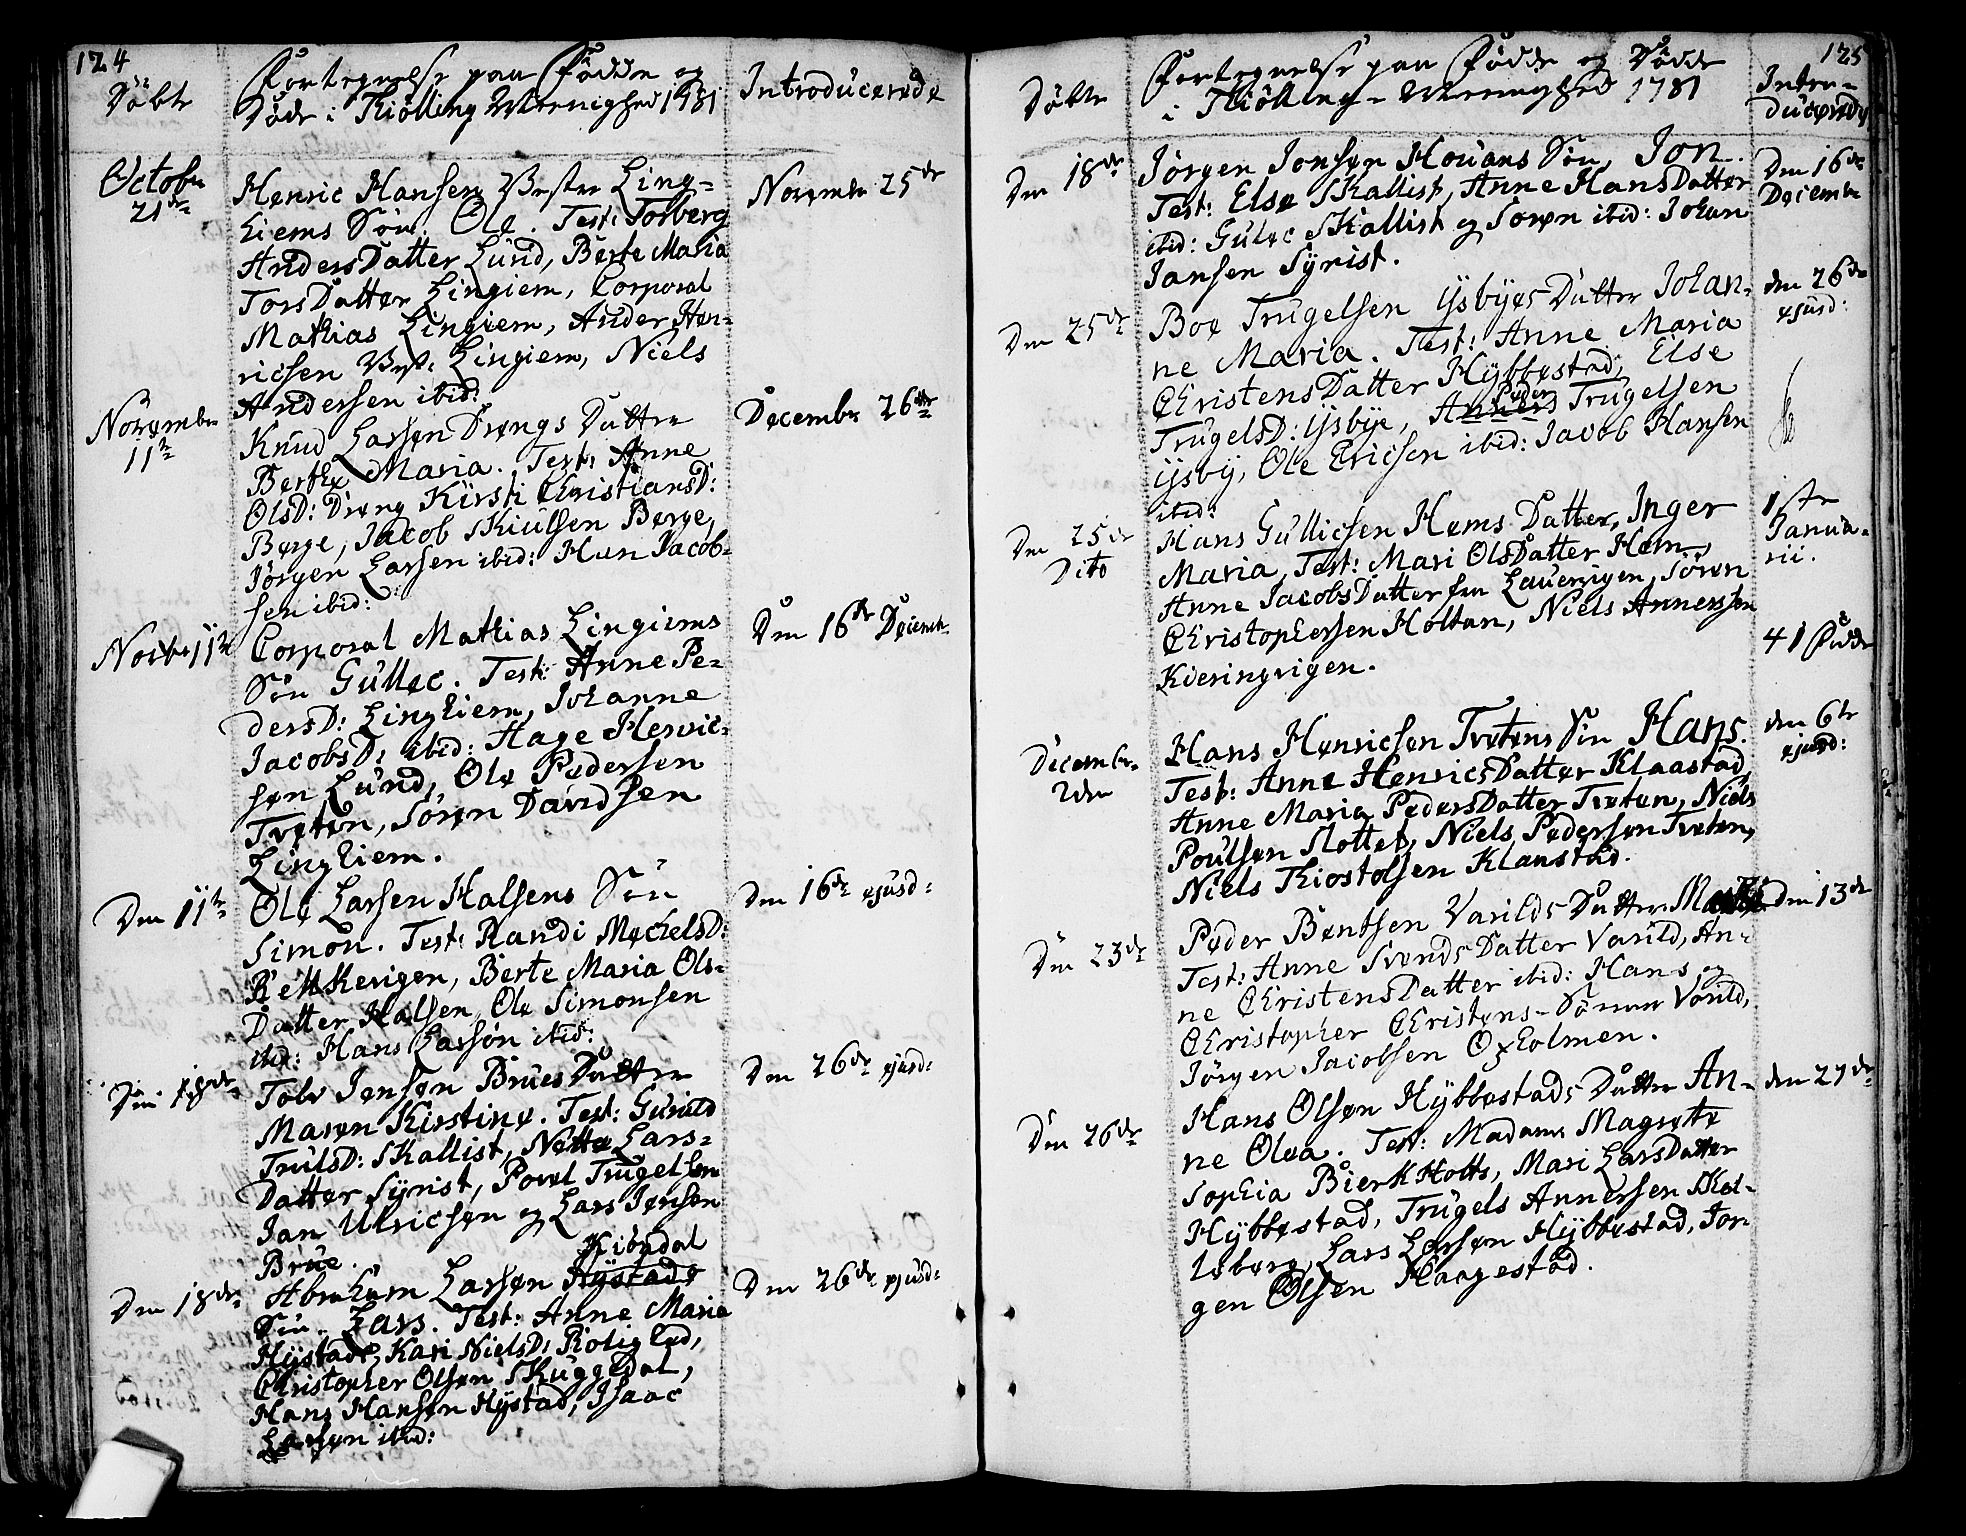 124
Döbte
Fortegnelse paa Födde og
Döde i Tiölling Meenighed 1781
Introducerede
Octobr
21de
Henric Hansen Vestre Ling-
hiems Sön. Ole. Test: Torberg
AndersDatter Lund, Berte Maria
TorsDatter Lingiem, Corporal
Mathias Lingiem, Ander Hen-
ricsen Vest: Lingiem, Niels
Andersen ibid:
November 25de
November
11te
Knud Larsen Drengs Datter
Berthe Maria. Test: Anne
OlsD: Dreng Kirsti ChristiansD:
Berge, Jacob SKiulsen Berge,
Jörgen Larsen ibid: Han Jacob-
sen ibid:
December 26de
Novbr 11te
Corporal Mathias Lingiems
Sön Gullec. Test: Anne Pe-
dersD: Linghiem, Johanne
JacobsD: ibid: Hage Henric-
sen Lund, Ole Pedersen
Tveten, Sören Davidsen
Linghiem.
Den 16de Decemb.
Den 11te
Ole Larsen Halsens Sön
Simon. Test: Randi MechelsD:
Rekkevigen, Berte Maria Ols-
Datter Halsen, Ole Simonsen
ibid: Hans Larsön ibid:
Den 16de ejusd:
Den 18de
Tolv Jensen Brues Datter
Maren Kirstine. Test: Gunild
TrulsD: SKallist, Nette Lars-
Datter Syrist, Povel Trugelsen
Jan Ulricsen og Lars Jensen
Brue.
Den 26de ejusd:
Den 18de
Abraham Larsen Hystads Kiöndal
Sön. Lars. Test: Anne Maria
Hystad, Kari NielsD: Rolighed,
Christopher Olsen SKuggedal,
Hans Hansen Hystad, Isaac
Larsen ibid:
Den 26de ejusd:
125
Döbte
Fortegnelse paa Födde og Södde
i Tiölling-Meenighed 1781
Intro-
ducerede
Den 18de
Jörgen Jonsen Hovans Sön, Jon.
Test: Else SKallist, Anne HansDatter
ibid: Gulec SKallist og Sören ibid: Johan
Jansen Syrist.
Den 16de
Decemb
Den 25de
Boe Trugelsen Ysbyes Datter Johan-
ne Maria. Test: Anne Maria
ChristensDatter Hybbestad, Else
TrugelsD: Ysbye, Anners Peder Trugelsen
Ysby, Ole Ericsen ibid: Jacob Hansen
ibid:
den 26de
ejusd:
Den 25de
Dito
Hans Gullicsen Hems Datter, Inger
Maria, Test: Mari OlsDatter Hem,
Anne JacobsDatter fra Lauervigen, Sören
Christophersen Holtan, Niels Annerssen
Kieringvigen.
1ste
Janua-
rii.
41 Födde
Decembr.
2den
Hans Henricsen Tvetens Sön Hans.
Test: Anne HenricsDatter Klaastad,
Anne Maria PedersDatter Tveten, Niels
Poulsen Slottet, Niels Pedersen Tveten,
Niels Tiostolsen Klaastad.
den 6te
ejusd:
Den 23de
Peder Bentsen Varilds Datter
Test: Anne SvendsDatter Varild, An-
ne ChristensDatter ibid: Hans og
Christopher Christens-Sönner Varild,
Jörgen Jacobsen Oxholmen.
den 13de
Den 26de
Hans Olsen Hybbestads Datter An-
ne Olea. Test: Madame Magrete
Sophia BierkHolts, Mari LarsDatter
Hybbestad, Trugels Annersen SKal-
leberg, Lars Larsen Hybbestad, Jör-
gen Olsen Haagestad.
den 27de